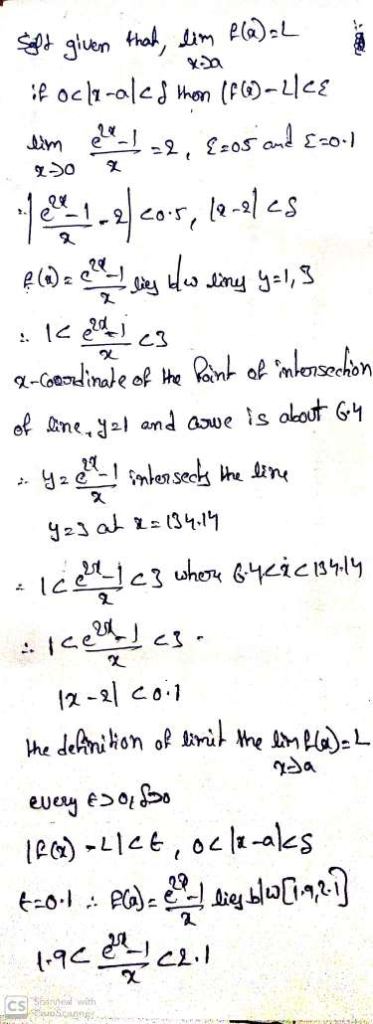 Sol: given that, lim f(x)=L
x→a
if 0<|x-a|<δ then |f(x)-L|<ε
lim e^2x-1/x =2, ε=05 and ε=0.1
x→0
∴ |e^2x-1/x -2| <0.5, |x-2| <δ
f(x) = e^2x-1/x lies b/w lines y=1, 3
∴ 1< e^2x-1/x <3
x-Coordinate of the Point of intersection
of line, y=1 and curve is about 6.4
∴ y= e^2x-1/x intersects the line
y=3 at x=134.14
∴ 1< e^2x-1/x <3 where 6.4<x<134.14
∴ 1< e^2x-1/x <3.
|x-2| <0.1
the definition of limit the lim f(x)=L
x→a
every ε>0, δ>0
|f(x)-L|<ε, 0<|x-a|<δ
ε=0.1 ∴ f(x)= e^2x-1/x lies b/w [1.9,2.1]
1.9< e^2x-1/x <2.1
CS Scanned with
CamScanner